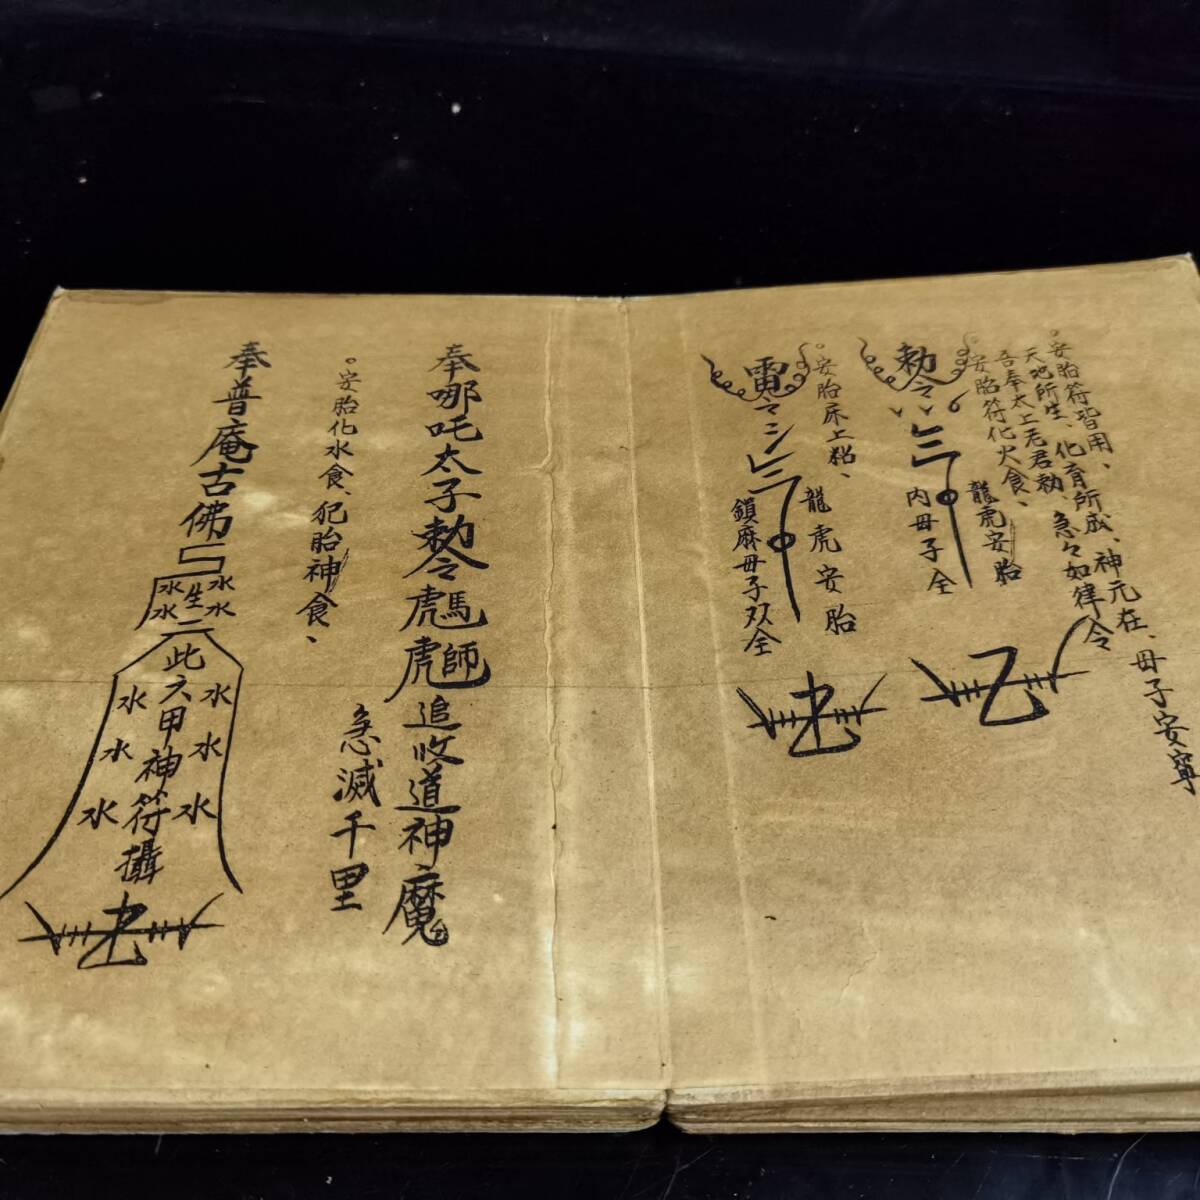 。安胎符皆用、
天地所生、化育所成、神元在、母子安寧
吾奉太上老君勅、急々如律令
。安胎符化火食、
龍虎安胎
勅令
內母子全
。安胎床上貼、
龍虎安胎
雷令
鎖麻母子双全
奉哪吒太子勅令 馬師追收道神魔
急滅千里
。安胎化水食、犯胎神食、
奉普庵古佛
水水生水水
此六甲神符攝
水水
水水
水水